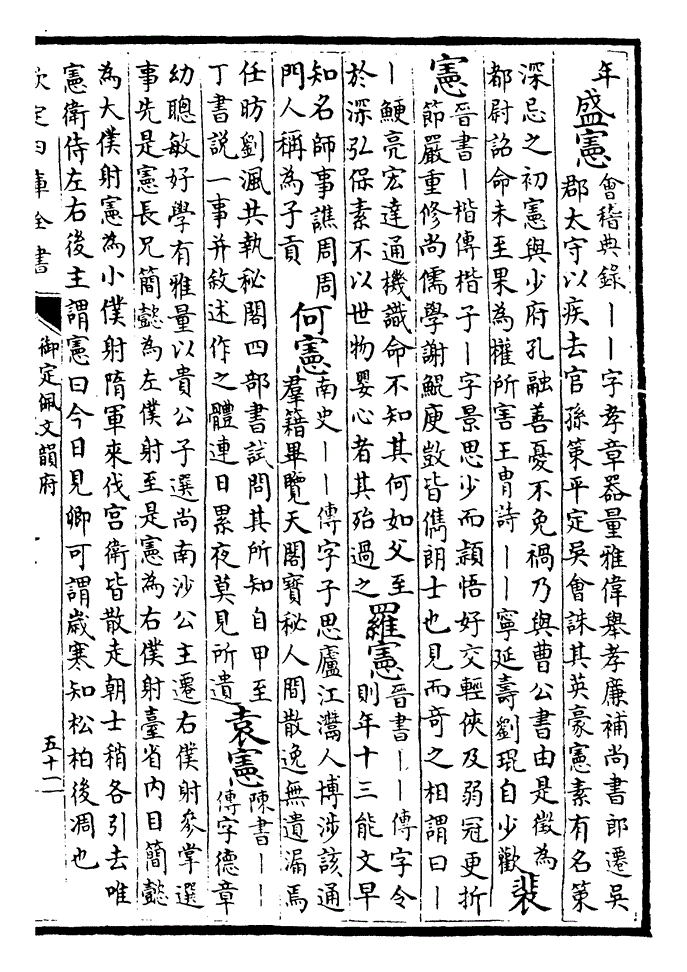 年
盛憲
會稽典錄——字孝章器量雅偉舉孝廉補尚書郎遷吳
郡太守以疾去官孫策平定吳會誅其英豪憲素有名策
深忌之初憲與少府孔融善憂不免禍乃與曹公書由是徵為
都尉詔命未至果為權所害王胄詩——寧延壽劉琨自少歡
裴
憲
晉書—楷傳楷子—字景思少而穎悟好交輕俠及弱冠更折
節嚴重修尚儒學謝鯤庾敳皆儁朗士也見而奇之相謂曰—
—鯁亮宏達通機識命不知其何如父至
於深弘保素不以世物嬰心者其殆過之
羅憲
晉書——傳字令
則年十三能文早
知名師事譙周周
門人稱為子貢
何憲
南史——傳字子思廬江灊人博涉該通
羣籍畢覽天閣寶秘人間散逸無遺漏焉
任昉劉渢共執秘閣四部書試問其所知自甲至
丁書說一事并敘述作之體連日累夜莫見所遺
袁憲
陳書——
傳字德章
幼聰敏好學有雅量以貴公子選尚南沙公主遷右僕射參掌選
事先是憲長兄簡懿為左僕射至是憲為右僕射臺省內目簡懿
為大僕射憲為小僕射隋軍來伐宮衛皆散走朝士稍各引去唯
憲衛侍左右後主謂憲曰今日見卿可謂歲寒知松柏後凋也
欽定四庫全書
御定佩文韻府